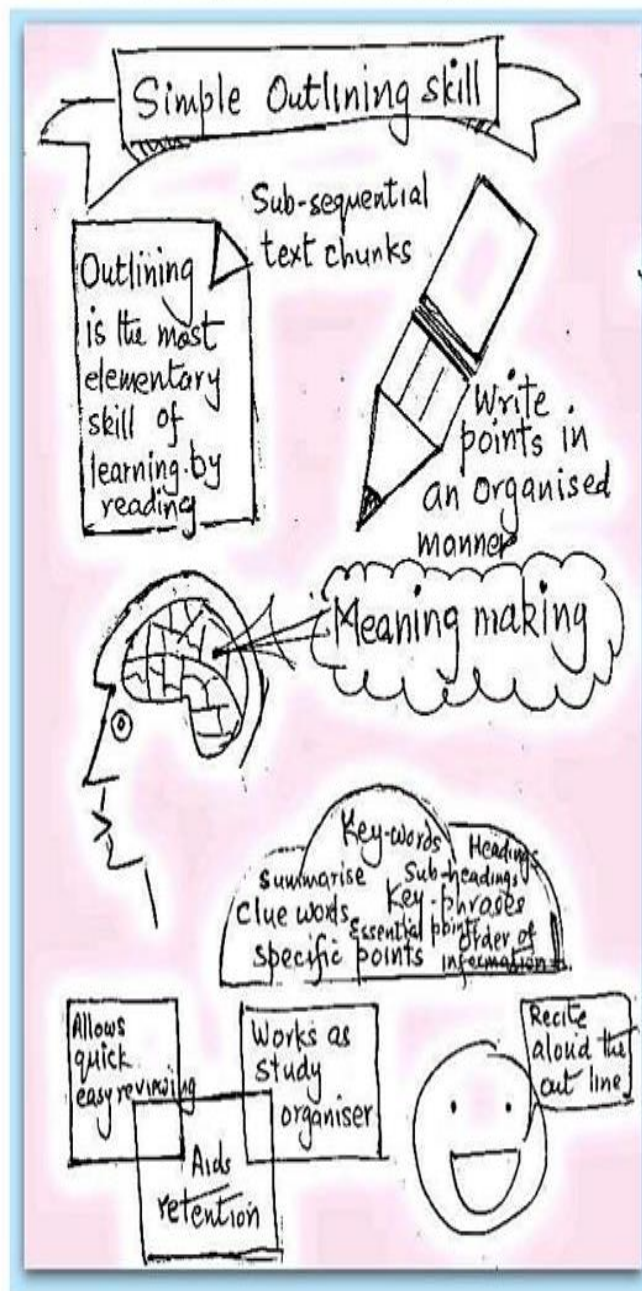 Simple Outlining skill
Sub-sequential
text chunks
Outlining
is the most
elementary
skill of
learning by
reading
Write
points in
an organised
manner
Meaning making
Key-words
Headings
Summarise
Sub-headings
Clue words
Key-phrases
Essential points
Order of
specific points
information
Allows
quick
easy reviewing
Works as
study
organiser
Aids
retention
Recite
aloud the
out line